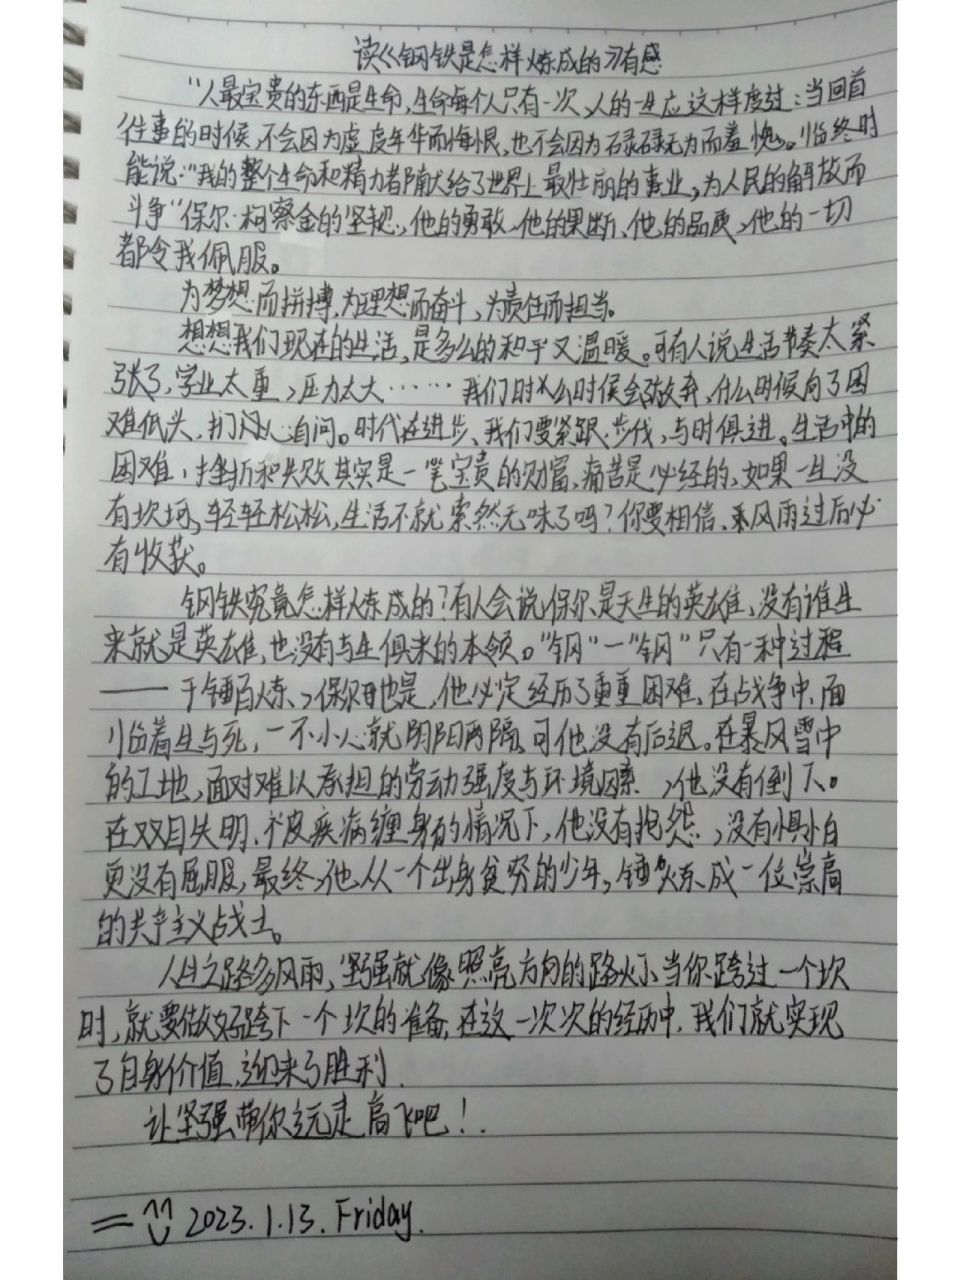 读《钢铁是怎样炼成的》有感
"人最宝贵的东西是生命,生命每个人只有一次,人的一生应这样度过:当回首
往事的时候,不会因为虚度年华而悔恨,也不会因为碌碌无为而羞愧。临终时
能说:"我的整个生命和精力都献给了世界上最壮丽的事业,为人民的解放而
斗争"保尔·柯察金的坚韧,他的勇敢、他的果断、他的品质,他的一切
都令我佩服。
为梦想而拼搏,为理想而奋斗,为责任而担当。
想想我们现在的生活,是多么的和平又温暖。可有人说生活节奏太紧
张了,学业太重,压力太大……我们时什么时候会放弃,什么时候向了困
难低头,扪心自问。时代在进步、我们要紧跟步伐,与时俱进。生活中的
困难,挫折和失败其实是一笔宝贵的财富,痛苦是必经的,如果一生没
有坎坷,轻轻松松,生活不就索然无味了吗?你要相信、风雨过后必
有收获。
钢铁究竟怎样炼成的?有人会说,保尔是天生的英雄,没有谁生
来就是英雄,也没有与生俱来的本领。"钢"—"钢"只有一种过程
——千锤百炼,保尔也是,他必定经历了重重困难,在战争中,面
临着生与死,一不小心就阴阳两隔,可他没有后退。在暴风雪中
的工地,面对难以承担的劳动强度与环境因素,他没有倒下。
在双目失明、疾病缠身的情况下,他没有抱怨,没有惧怕
更没有屈服,最终,他从一个出身贫穷的少年,锤炼成一位崇高
的共产主义战士。
人生之路多风雨,坚强就像照亮方向的路火,当你跨过一个坎
时,就要做好跨下一个坎的准备,在这一次次的经历中,我们就实现
了自身价值,迎来了胜利.
让坚强带你远走高飞吧!
2023.1.13.Friday.